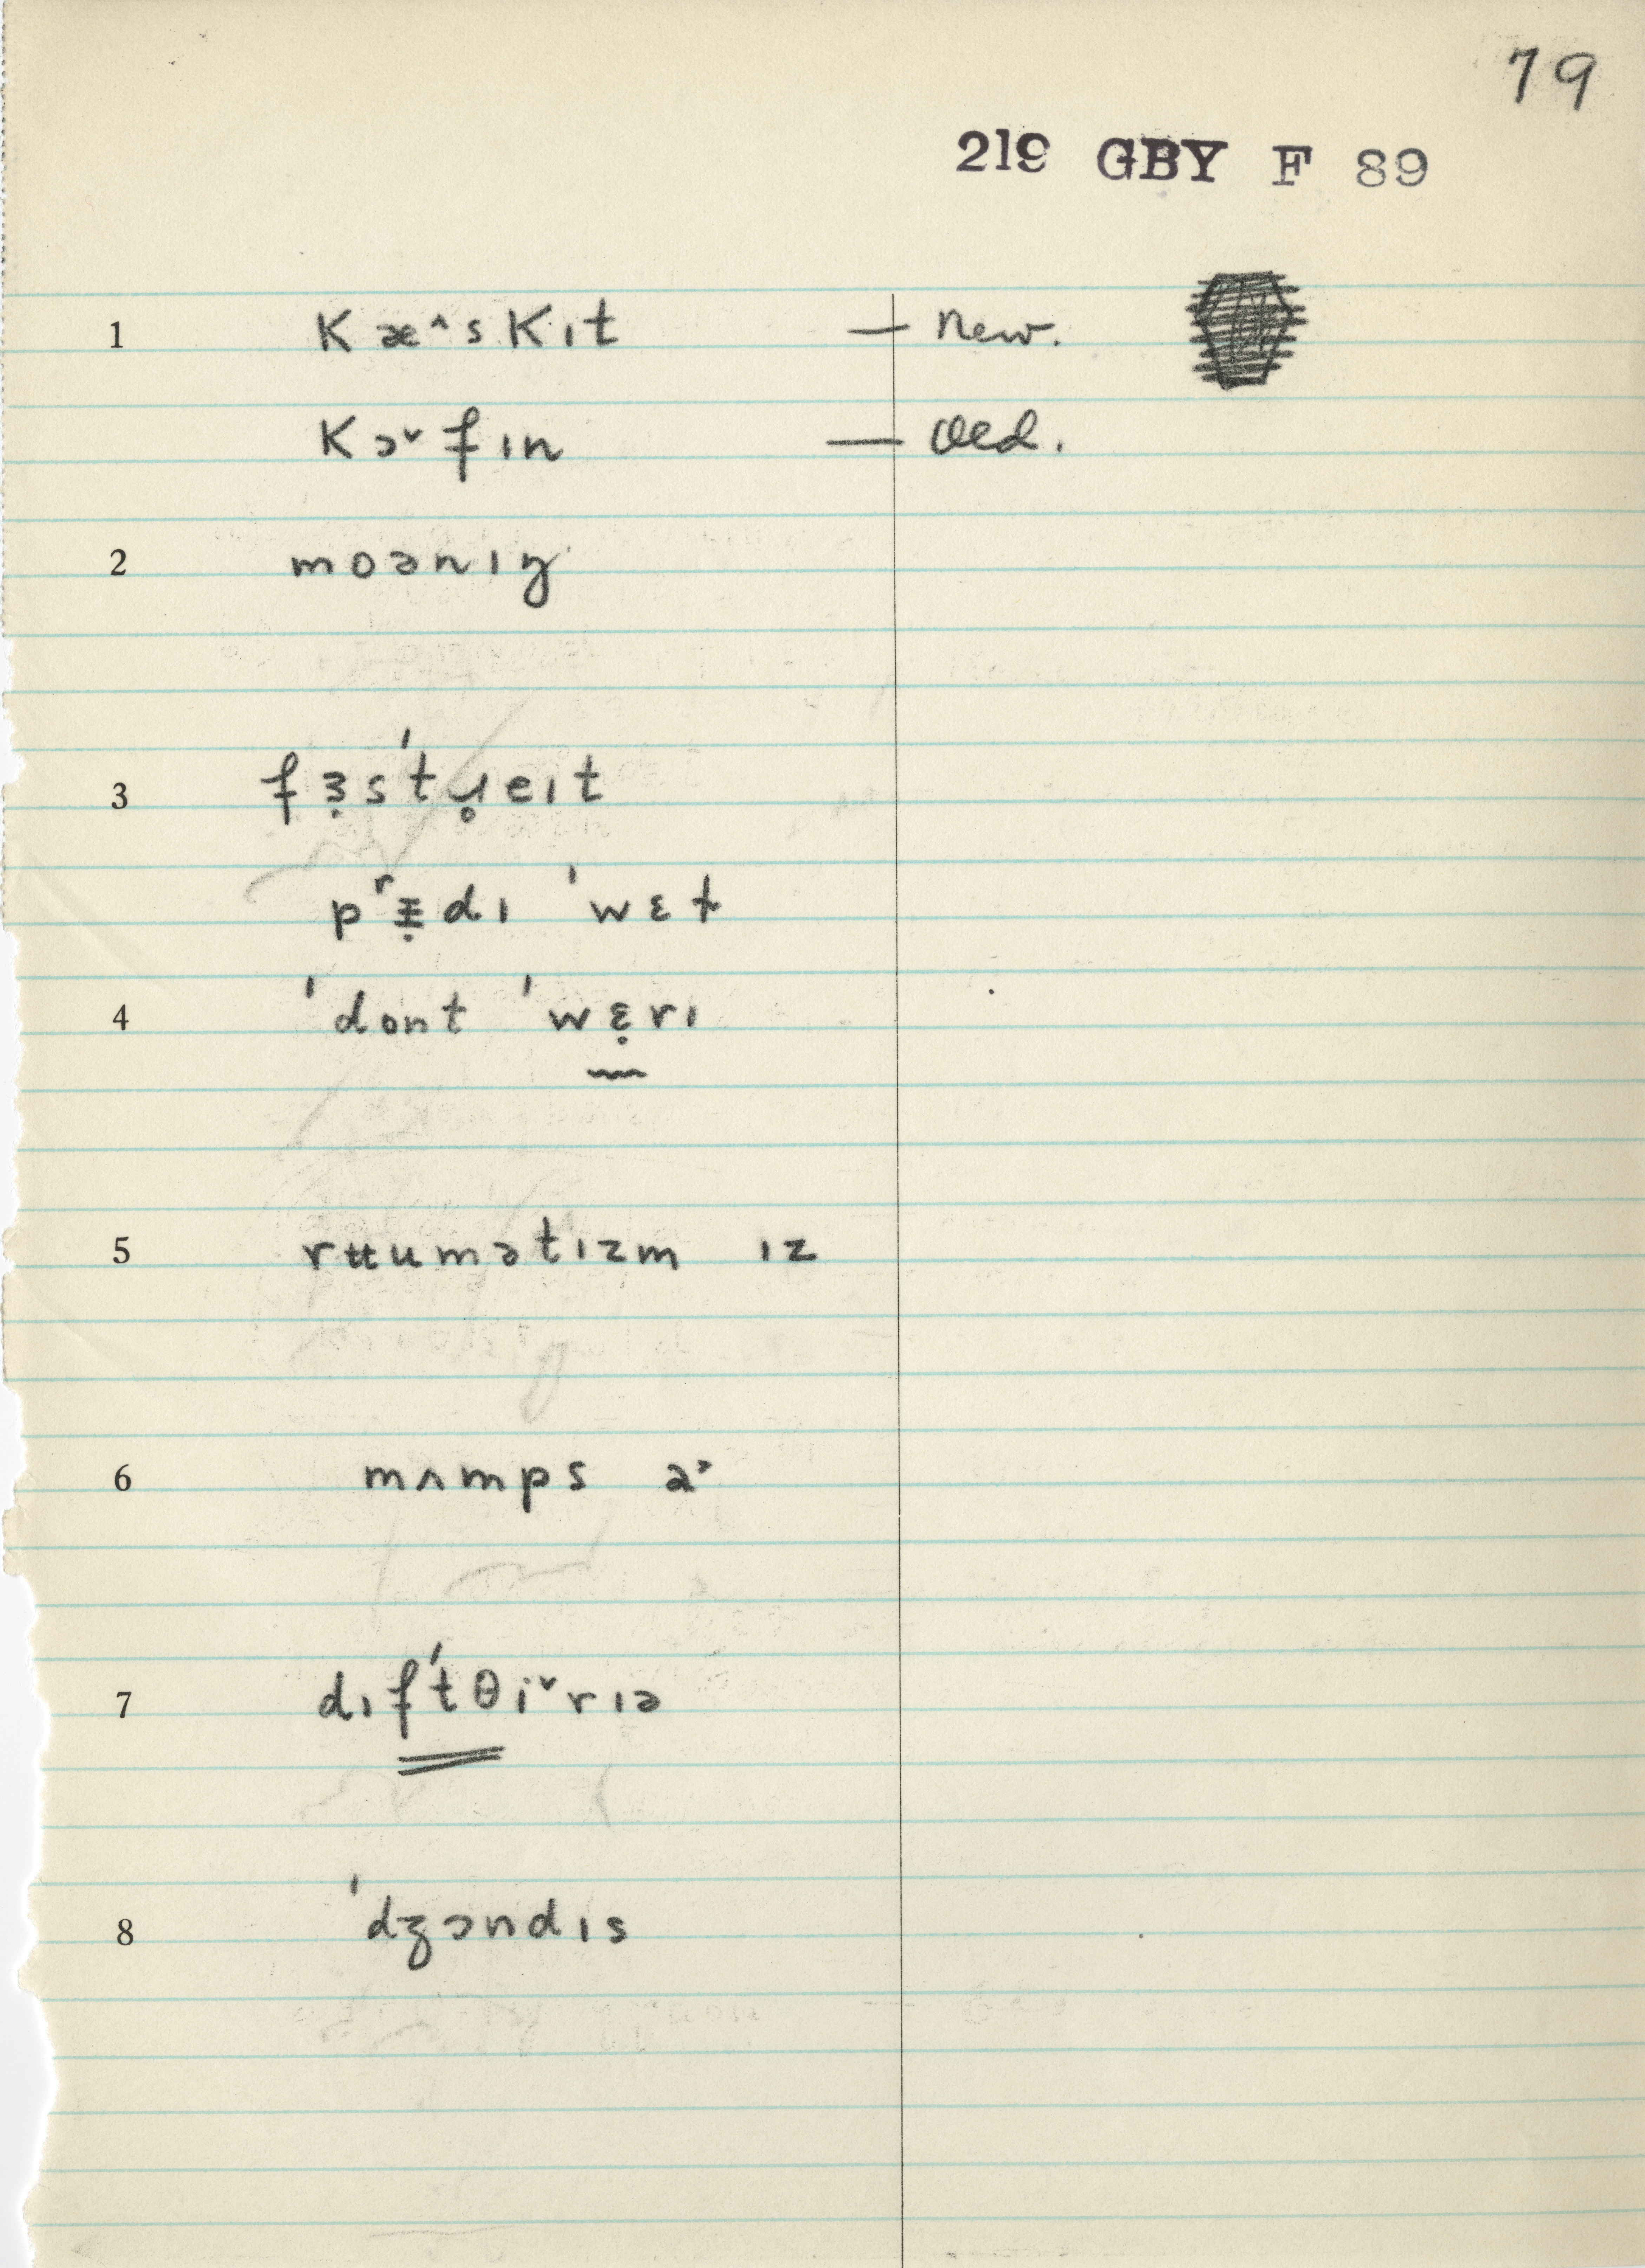 79
219 GBY F 89
1 kæ^skɪt — New.
kɔ˅fɪn — Old.
2 moənɪŋ
3 fɜ̣s'tɹ̥eɪt
pʳᵻ̣dɪ 'wɛt
4 'dont 'wɛ̣rɪ
5 rʉumətɪzm ɪz
6 mʌmps a˃
7 dɪf'tθi˅rɪə
8 'dʒɔndɪs